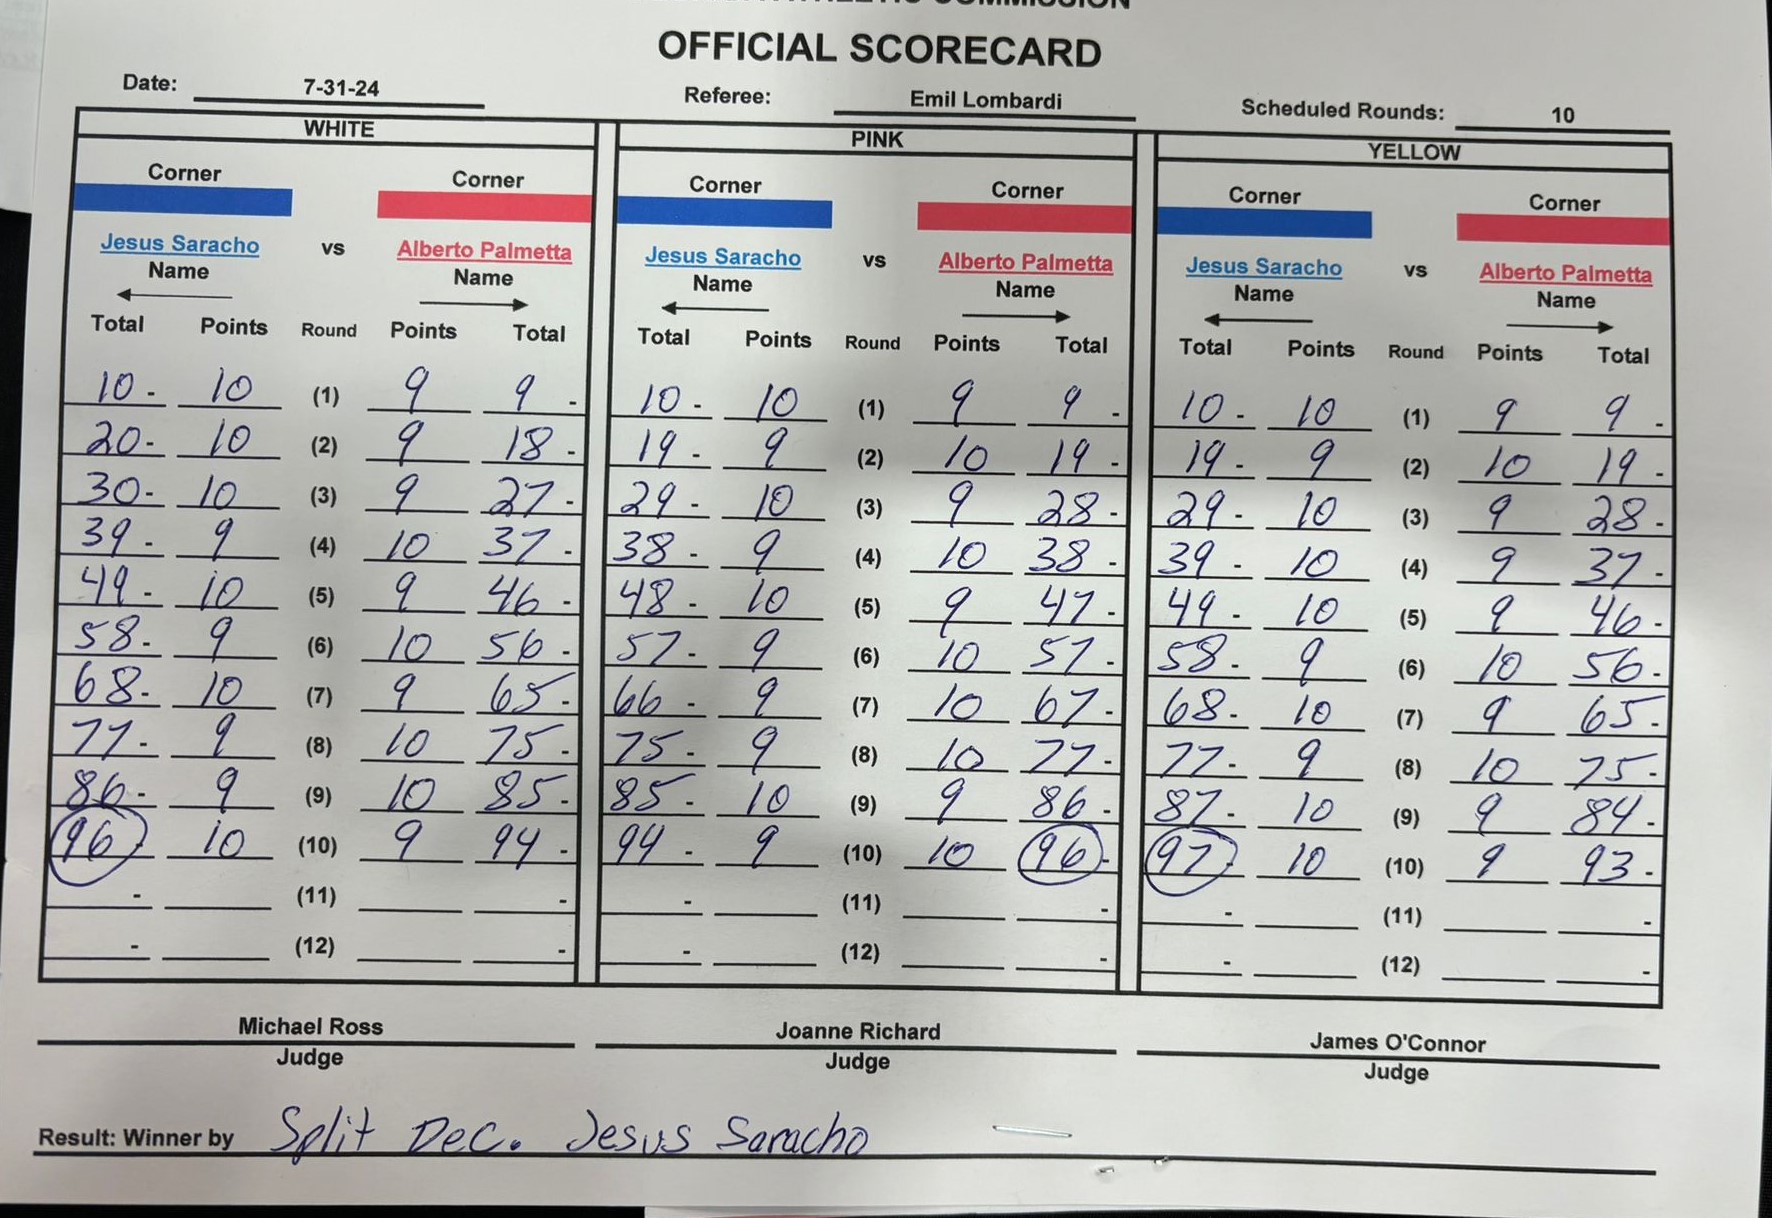 COMMISSION
OFFICIAL SCORECARD
Date: 7-31-24 Referee: Emil Lombardi Scheduled Rounds: 10
WHITE PINK YELLOW
Corner Corner Corner Corner Corner Corner
Jesus Saracho vs Alberto Palmetta Jesus Saracho vs Alberto Palmetta Jesus Saracho vs Alberto Palmetta
Name Name Name Name Name Name
Total Points Round Points Total Total Points Round Points Total Total Points Round Points Total
10 - 10 (1) 9 9 - 10 - 10 (1) 9 9 - 10 - 10 (1) 9 9 -
20 - 10 (2) 9 18 - 19 - 9 (2) 10 19 - 19 - 9 (2) 10 19 -
30 - 10 (3) 9 27 - 29 - 10 (3) 9 28 - 29 - 10 (3) 9 28 -
39 - 9 (4) 10 37 - 38 - 9 (4) 10 38 - 39 - 10 (4) 9 37 -
49 - 10 (5) 9 46 - 48 - 10 (5) 9 47 - 49 - 10 (5) 9 46 -
58 - 9 (6) 10 56 - 57 - 9 (6) 10 57 - 58 - 9 (6) 10 56 -
68 - 10 (7) 9 65 - 66 - 9 (7) 10 67 - 68 - 10 (7) 9 65 -
77 - 9 (8) 10 75 - 75 - 9 (8) 10 77 - 77 - 9 (8) 10 75 -
86 - 9 (9) 10 85 - 85 - 10 (9) 9 86 - 87 - 10 (9) 9 84 -
96 - 10 (10) 9 94 - 94 - 9 (10) 10 96 - 97 - 10 (10) 9 93 -
- (11) - - (11) - - (11) -
- (12) - - (12) - - (12) -
Michael Ross Joanne Richard James O'Connor
Judge Judge Judge
Result: Winner by Split Dec. Jesus Saracho